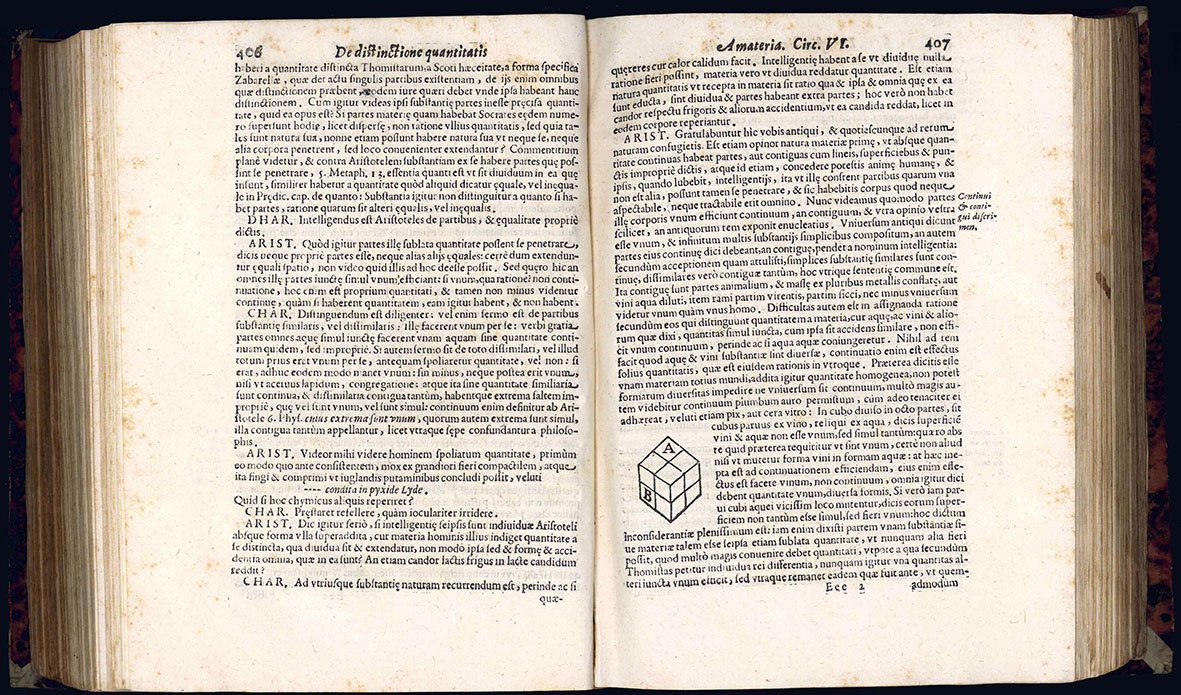 406 De distinctione quantitatis
haberi a quantitate distincta Thomistarum, a Scoti hæcceitate, a forma specifica
Zabarellæ, quæ det actu singulis partibus existentiam, de ijs enim omnibus
quæ distinctionem præbent, eodem iure quæri debet vnde ipsa habeant hanc
distinctionem. Cum igitur videas ipsi substantię partes inesse pręcisa quanti-
tate, quid ea opus est? Si partes materię quam habebat Socrates eędem nume-
ro supersunt hodie, licet dispersę, non ratione vllius quantitatis, sed quia ta-
les sunt natura sua, nonne etiam possunt habere natura sua vt neque se, neque
alia corpora penetrent, sed loco conuenienter extendantur? Commentitium
planè videtur, & contra Aristotelem substantiam ex se habere partes quę pos-
sint se penetrare, 5. Metaph. 13. essentia quanti est vt sit diuiduum in ea quę
insunt, similiter habetur a quantitate quòd aliquid dicatur ęquale, vel inęqua-
le in Prędic. cap. de quanto: Substantia igitur non distinguitur a quanto si ha-
bet partes, ratione quarum sit alteri ęqualis, vel inęqualis.
DHAR. Intelligendus est Aristoteles de partibus, & ęqualitate propriè
dictis.
ARIST. Quòd igitur partes illę sublata quantitate possent se penetrare,
dicis neque propriè partes esse, neque alias alijs ęquales: certè dum extendun-
tur ęquali spatio, non video quid illis ad hoc deesse possit. Sed quęro hic an
omnes illę partes iunctę simul vnum efficiant: si vnum, qua ratione? non conti-
nuatione, hoc enim est proprium quantitati, & tamen non minus videntur
continuę, quàm si haberent quantitatem, eam igitur habent, & non habent.
CHAR. Distinguendum est diligenter: vel enim sermo est de partibus
substantię similaris, vel dissimilaris: illę facerent vnum per se: verbi gratia
partes omnes aquę simul iunctę facerent vnam aquam sine quantitate conti-
nuam quidem, sed impropriè. Si autem sermo sit de toto dissimilari, vel illud
totum prius erat vnum per se, antequam spoliaretur quantitate, vel non: si
erat, adhuc eodem modo manet vnum: sin minus, neque postea erit vnum,
nisi vt aceruus lapidum, congregatione: atque ita sine quantitate similaria
sunt continua, & dissimilaria contigua tantùm, habentque extrema saltem im-
propriè, quę vel sunt vnum, vel sunt simul: continuum enim definitur ab Ari-
stotele 6. Phys. cuius extrema sunt vnum, quorum autem extrema sunt simul,
illa contigua tantùm appellantur, licet vtraque sępe confundantur a philoso-
phis.
ARIST. Videor mihi videre hominem spoliatum quantitate, primùm
eo modo quo ante consistentem, mox ex grandiori fieri compactilem, atque
ita fingi & comprimi vt iuglandis putaminibus concludi possit, veluti
---- condita in pyxide Lyde.
Quid si hoc chymicus aliquis reperiret?
CHAR. Pręstaret refellere, quàm ioculariter irridere.
ARIST. Dic igitur seriò, si intelligentię seipsis sunt indiuiduæ Aristoteli
absque forma vlla superaddita, cur materia hominis illius indiget quantitate a
se distincta, qua diuidua sit & extendatur, non modò ipsa sed & formę & acci-
dentia omnia, quæ in ea sunt? An etiam candor lactis frigus in lacte candidum
reddit?
CHAR. Ad vtriusque substantię naturam recurrendum est, perinde ac si
quæ-
A materia. Circ. VI. 407
quęreres cur calor calidum facit. Intelligentię habent a se vt diuiduę nulla
ratione fieri possint, materia vero vt diuidua reddatur quantitate. Est etiam
natura quantitatis vt recepta in materia sit ratio qua & ipsa & omnia quę ex ea
sunt educta, sint diuidua & partes habeant extra partes; hoc verò non habet
candor respectu frigoris & aliorum accidentium, vt ea candida reddat, licet in
eodem corpore reperiantur.
ARIST. Gratulabuntur hic vobis antiqui, & quotiescunque ad rerum
naturam confugietis. Est etiam opinor natura materiæ primę, vt absque quan-
titate continuas habeat partes, aut contiguas cum lineis, superficiebus & pun-
ctis impropriè dictis, atque id etiam, concedere potestis animę humanę, &
ipsis, quando lubebit, intelligentijs, ita vt illę constent partibus quarum vna
non est alia, possunt tamen se penetrare, & sic habebitis corpus quod neque
aspectabile, neque tractabile erit omnino. Nunc videamus quo modo partes
illę corporis vnum efficiunt continuum, an contiguum, & vtra opinio vestra
scilicet, an antiquorum rem exponit enucleatius. Vniuersum antiqui dicunt
esse vnum, & infinitum multis substantijs simplicibus compositum, an autem
partes eius continuę dici debeant, an contiguę, pendet a nominum intelligentia:
secundùm acceptionem quam attulisti, simplices substantię similares sunt con-
tinuę, dissimilares verò contiguæ tantùm, hoc vtrique sententię commune est.
Ita contiguę sunt partes animalium, & massę ex pluribus metallis constatę, aut
vini aqua diluti, item rami partim virentis, partim sicci, nec minus vniuersum
videtur vnum quàm vnus homo. Difficultas autem est in assignanda ratione
secundùm eos qui distinguunt quantitatem a materia, cur aquę, ac vini & alio-
rum quæ dixi, quantitas simul iuncta, cum ipsa sit accidens similare, non effi-
cit vnum continuum, perinde ac si aqua aquæ coniungeretur. Nihil ad rem
facit quod aquę & vini substantiæ sint diuersæ, continuatio enim est effectus
solius quantitatis, quæ est eiusdem rationis in vtroque. Præterea dicitis esse
vnam materiam totius mundi, addita igitur quantitate homogenea, non potest
formarum diuersitas impedire ne vniuersum sit continuum, multò magis au-
tem videbitur continuum plumbum auro permistum, cum adeo tenaciter ei
adhæreat, veluti etiam pix, aut cera vitro: In cubo diuiso in octo partes, sit
cubus paruus ex vino, reliqui ex aqua, dicis superficiē
vini & aquæ non esse vnum, sed simul tantùm: quæro abs
te quid præterea requiritur vt sint vnum, certè non aliud
nisi vt mutetur forma vini in formam aquæ: at hæc ine-
pta est ad continuationem efficiendam, eius enim effe-
ctus est facere vnum, non continuum, omnia igitur dici
debent quantitate vnum, diuersa formis. Si verò iam par-
ui cubi aquei vicissim loco mutentur, dicis eorum super-
ficiem non tantùm esse simul, sed fieri vnum: hoc dictum
inconsiderantiæ plenissimum est: iam enim dixisti partem vnam substantiæ si-
ue materiæ talem esse seipsa etiam sublata quantitate, vt nunquam alia fieri
possit, quod multò magis conuenire debet quantitati, vtpote a qua secundùm
Thomistas petitur indiuidua rei differentia, nunquam igitur vna quantitas al-
teri iuncta vnum efficit, sed vtraque remanet eadem quæ fuit ante, vt quem-
Eee 2 admodum
Continui
& conti-
gui discri-
men.
A
B